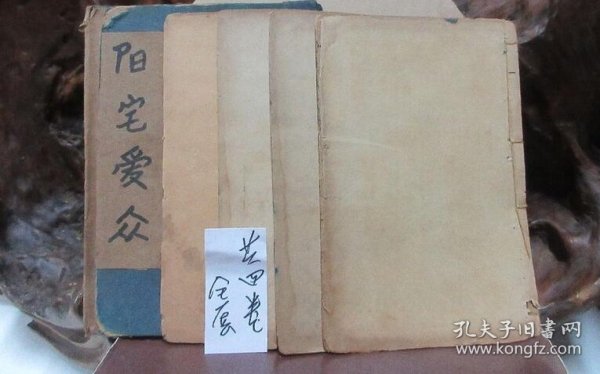 阳宅爱众
共四卷
全厚
孔夫子旧书网
www.kongfz.com